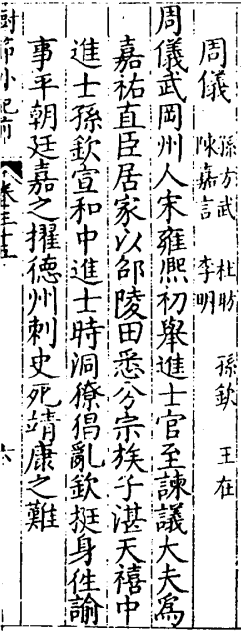 周儀 孫方武 杜昉 孫欽 王在
陳嘉言 李明
周儀武岡州人宋雍熙初舉進士官至諫議大夫為
嘉祐直臣居家以邵陵田悉分宗族子湛天禧中
進士孫欽宣和中進士時洞獠倡亂欽挺身徃諭
事平朝廷嘉之擢德州刺史死靖康之難
卷三十五
六